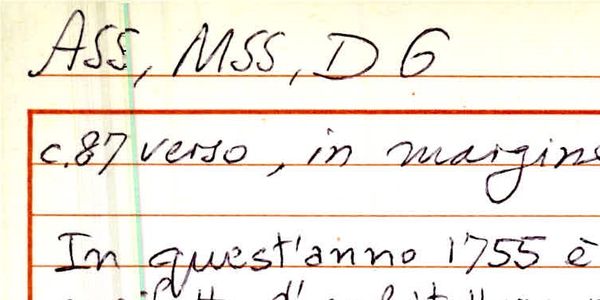 ASS, MSS, D 6
c.87 verso, in margine
In quest'anno 1755 è